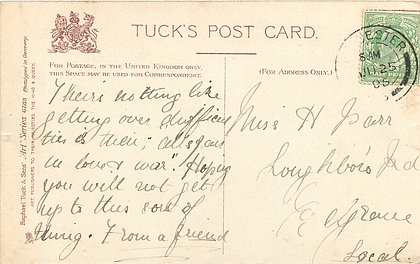 TUCK'S POST CARD.
FOR POSTAGE, IN THE UNITED KINGDOM ONLY,
THIS SPACE MAY BE USED FOR CORRESPONDENCE.
(FOR ADDRESS ONLY.)
Their's nothing like
getting over difficul
ties is their; alls fair
in love & war". Hoping
you will not get
up to this sort of
thing. From a friend
Miss H Parr
Loughboro Rd
Belgrave
Local.
ESTER
JU 25
05
Raphael Tuck & Sons' "Art" Series
ART PUBLISHERS TO THEIR MAJESTIES THE KING & QUEEN.